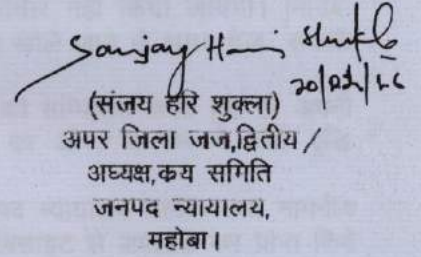 Sanjay Hari Shukla
(संजय हरि शुक्ला)
अपर जिला जज,द्वितीय /
अध्यक्ष,कय समिति
जनपद न्यायालय,
महोबा।